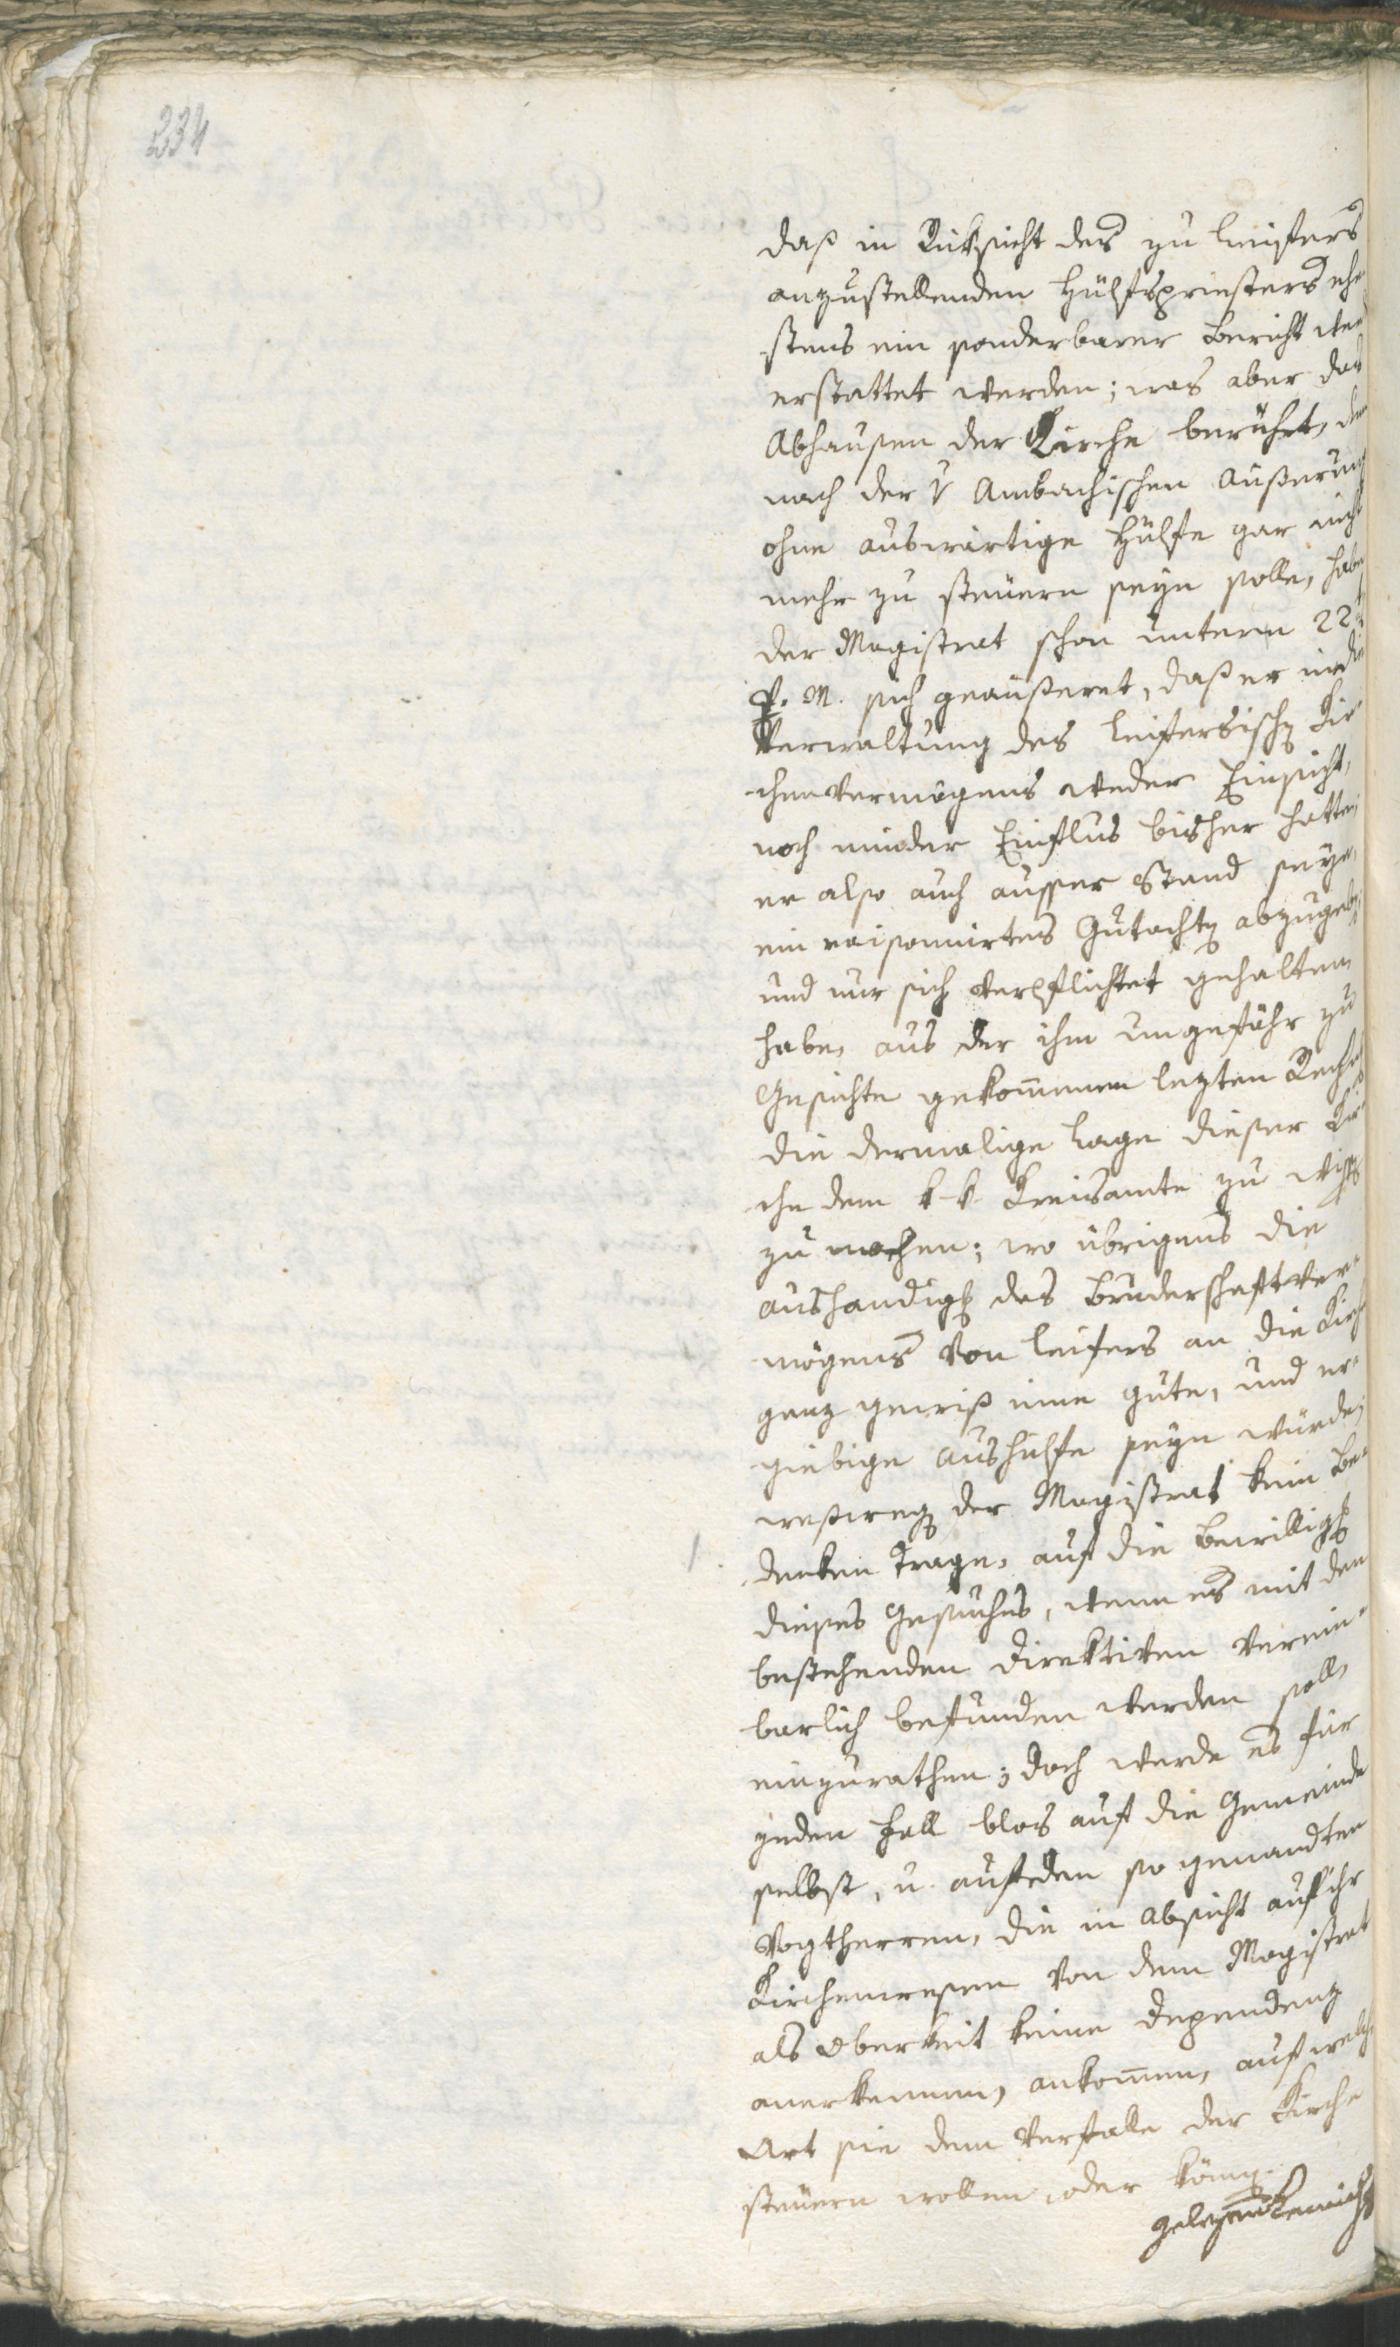 234
daß in Rüksicht des zu Leifers
anzustellenden Hülfspriesters ehe
stens ein sonderbarer Bericht wer
erstattet werden; was aber das
Abhausen der Kirche berührt, dem
nach der v Ambachischen Äußerung
ohne auswärtige Hülfe gar nicht
mehr zu steuern seyn solle, habe
der Magistrat schon unterm 22t
p. M. sich geäußeret, daß er in die
Verwaltung des leifersisch Kir
chenvermögens weder Einsicht,
noch minder Einflus bisher hatte,
er also auch ausser Stand seye,
ein raisonnirtes Gutacht abzugeb
und nur sich verpflichtet gehalten
habe, aus der ihm ungefähr zu
Gesichte gekommenen lezten Rechn
die dermalige Lage dieser Kir
che dem k-k Kreisamte zu wiss
zu machen; wo übrigens die
Aushändig des Bruderschaftver-
mögens von Leifers an die Kirche
ganz gewiß eine gute, und er-
giebige Aushilfe seyn würde;
weßweg der Magistrat kein Be-
denken trage, auf die Bewillig
dieses Gesuches, wenn es mit den
bestehenden Direktiven verein-
barlich befunden werden soll,
einzurathen; doch werde es für
jeden Fall blos auf die Gemeinde
selbst, u. auf den so genandten
Vogtherren, die in Absicht auf ihr
Kirchenwesen von dem Magistrat
als Oberkeit keine Dependenz
anerkennen, ankommen, auf welche
Art sie dem Verfalle der Kirche
steuern wollen oder könn.